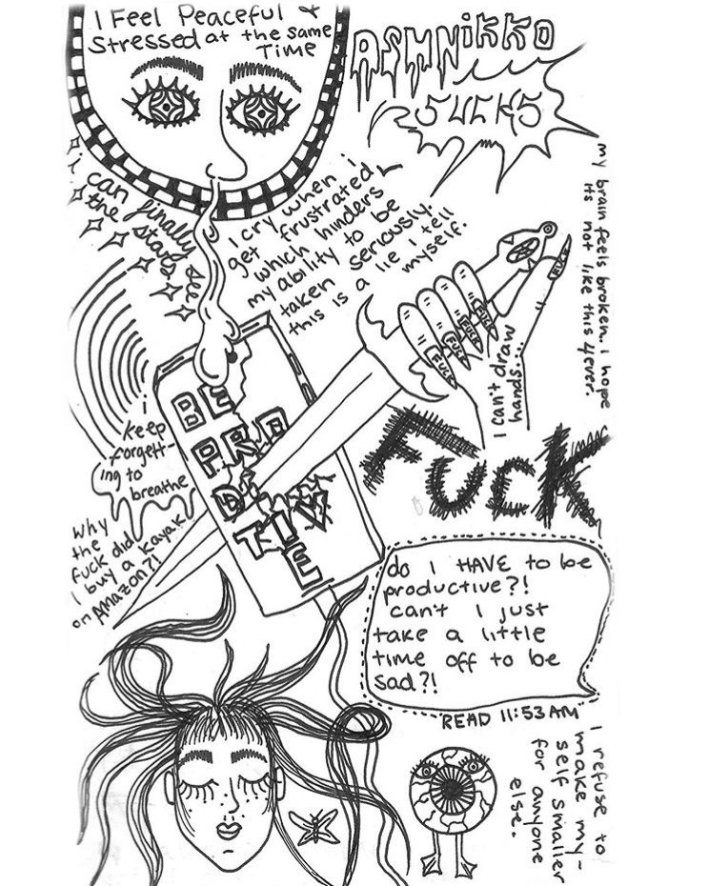 I Feel Peaceful &
Stressed at the same
Time
ASHNiKKO
SUCKS
my brain feels broken. i hope
its not like this 4ever.
i can finally see
the stars
I cry when i
get frustrated
which hinders
my ability to be
taken seriously.
this is a lie i tell
myself.
FUCK
FUCK
FUCK
FUCK
FUCK
I can't draw
hands...
BE
PRO
DU
TIV
E
i
keep
forgett-
ing to
breathe
FUCK
Why
the
fuck did
I buy a kayak
on Amazon?!
do I HAVE to be
productive?!
can't I just
take a little
time off to be
sad?!
READ 11:53 AM
I refuse to
make my-
self smaller
for anyone
else.